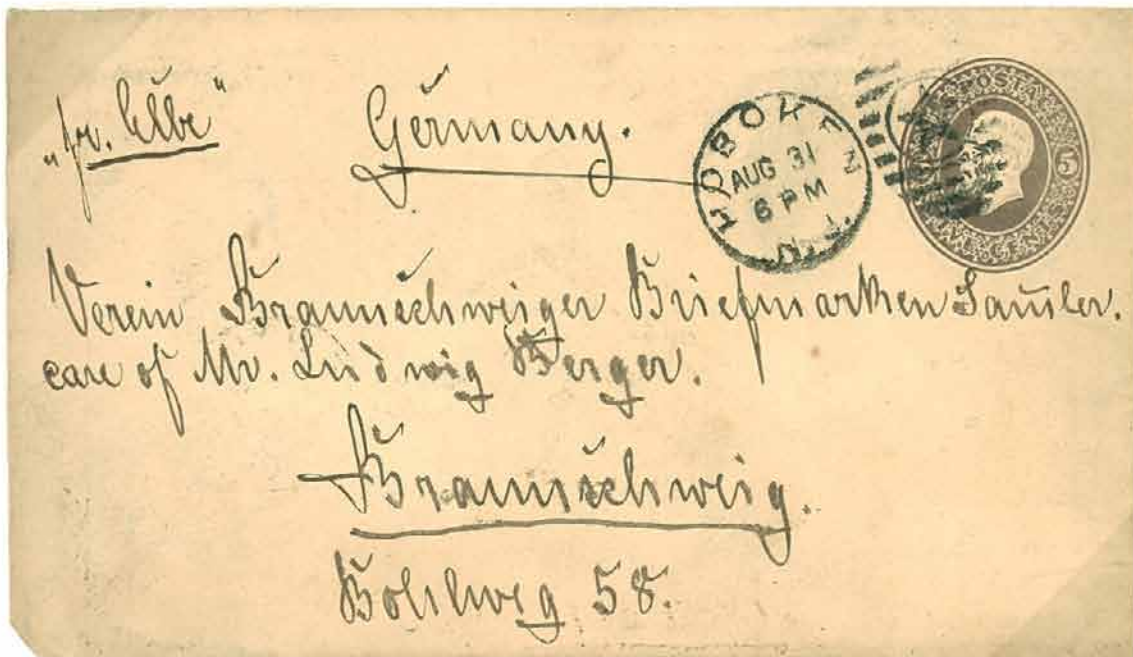 „pr. Elbe"
Germany.
HOBOKEN
AUG 31
6 PM
N.J.
5
Verein Braunschweiger Briefmarken Sam̅ler.
care of Mr. Ludwig Berger.
Braunschweig.
Bohlweg 58.